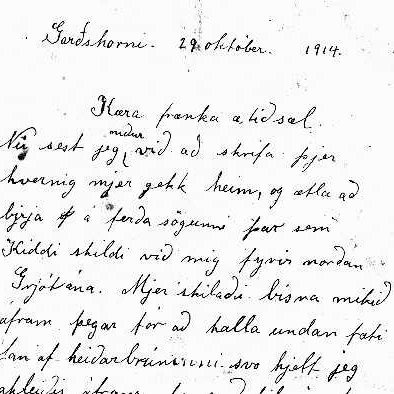 Garðshorni. 29 október. 1914.
Kæra frænka æ, tíð sæl.
niður
Nú sest jeg við að skrifa þjer
hvernig mjer gekk heim, og ætla að
birja á ferða sögunni þar sem
Kiddi skildi við mig fyrir norðan
Grjótána. Mjer skilaði bísna mikið
áfram þegar fór að halla undan fæti
fan af heiðarbrúninni svo hjelt jeg
áfram